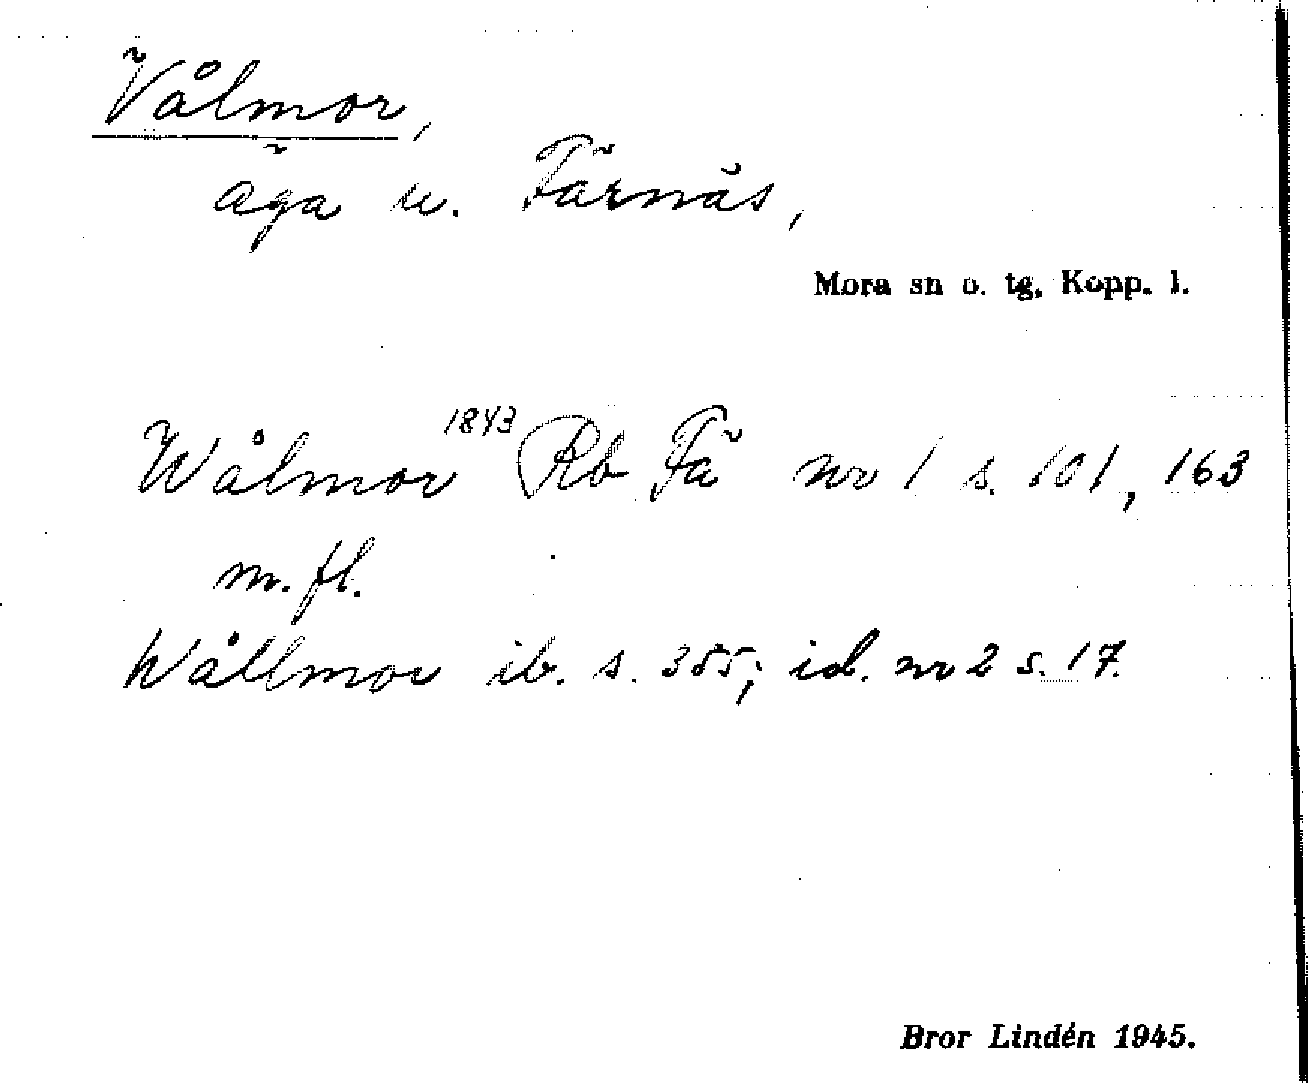 Vålmor,
äga u. Färnäs,
Mora sn o. tg, Kopp. l.
Wålmor 1843 Rb Fä nr 1 s. 101, 163
m. fl.
Wållmor ib. s. 355; id. nr 2 s. 17.
Bror Lindén 1945.